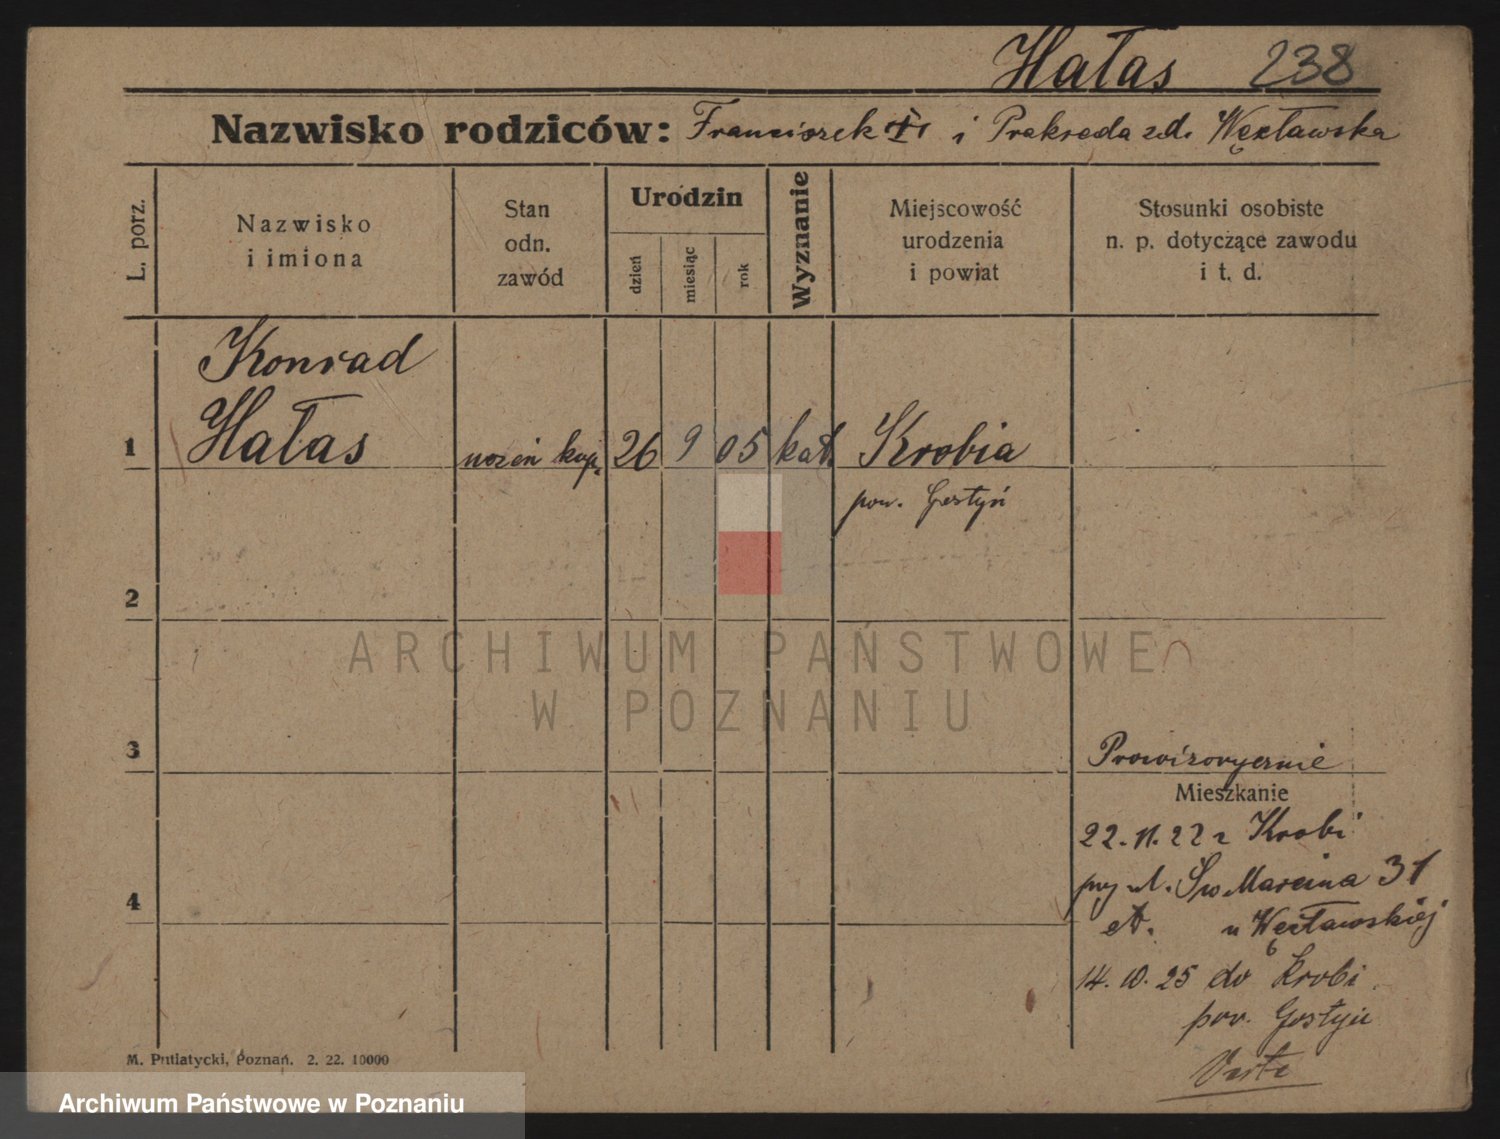 Hałas 238
Nazwisko rodziców: Franciszek i Prakseda zd. Węcławska
L. porz.
Nazwisko
i imiona
Stan
odn.
zawód
Urodzin
dzień
miesiąc
rok
Wyznanie
Miejscowość
urodzenia
i powiat
Stosunki osobiste
n. p. dotyczące zawodu
i t. d.
Konrad
1 Hałas uczeń kup. 26 9 05 kat. Krobia
pow. Gostyń
2
3
Prowizorycznie
Mieszkanie
22.11.22 z Krobi
przy ul. Św Marcina 31
4
u Węcławskiej
14.10.25 do Krobi
pow. Gostyń
M. Putiatycki, Poznań. 2. 22. 10000
ARCHIWUM PAŃSTWOWE
W POZNANIU
Archiwum Państwowe w Poznaniu